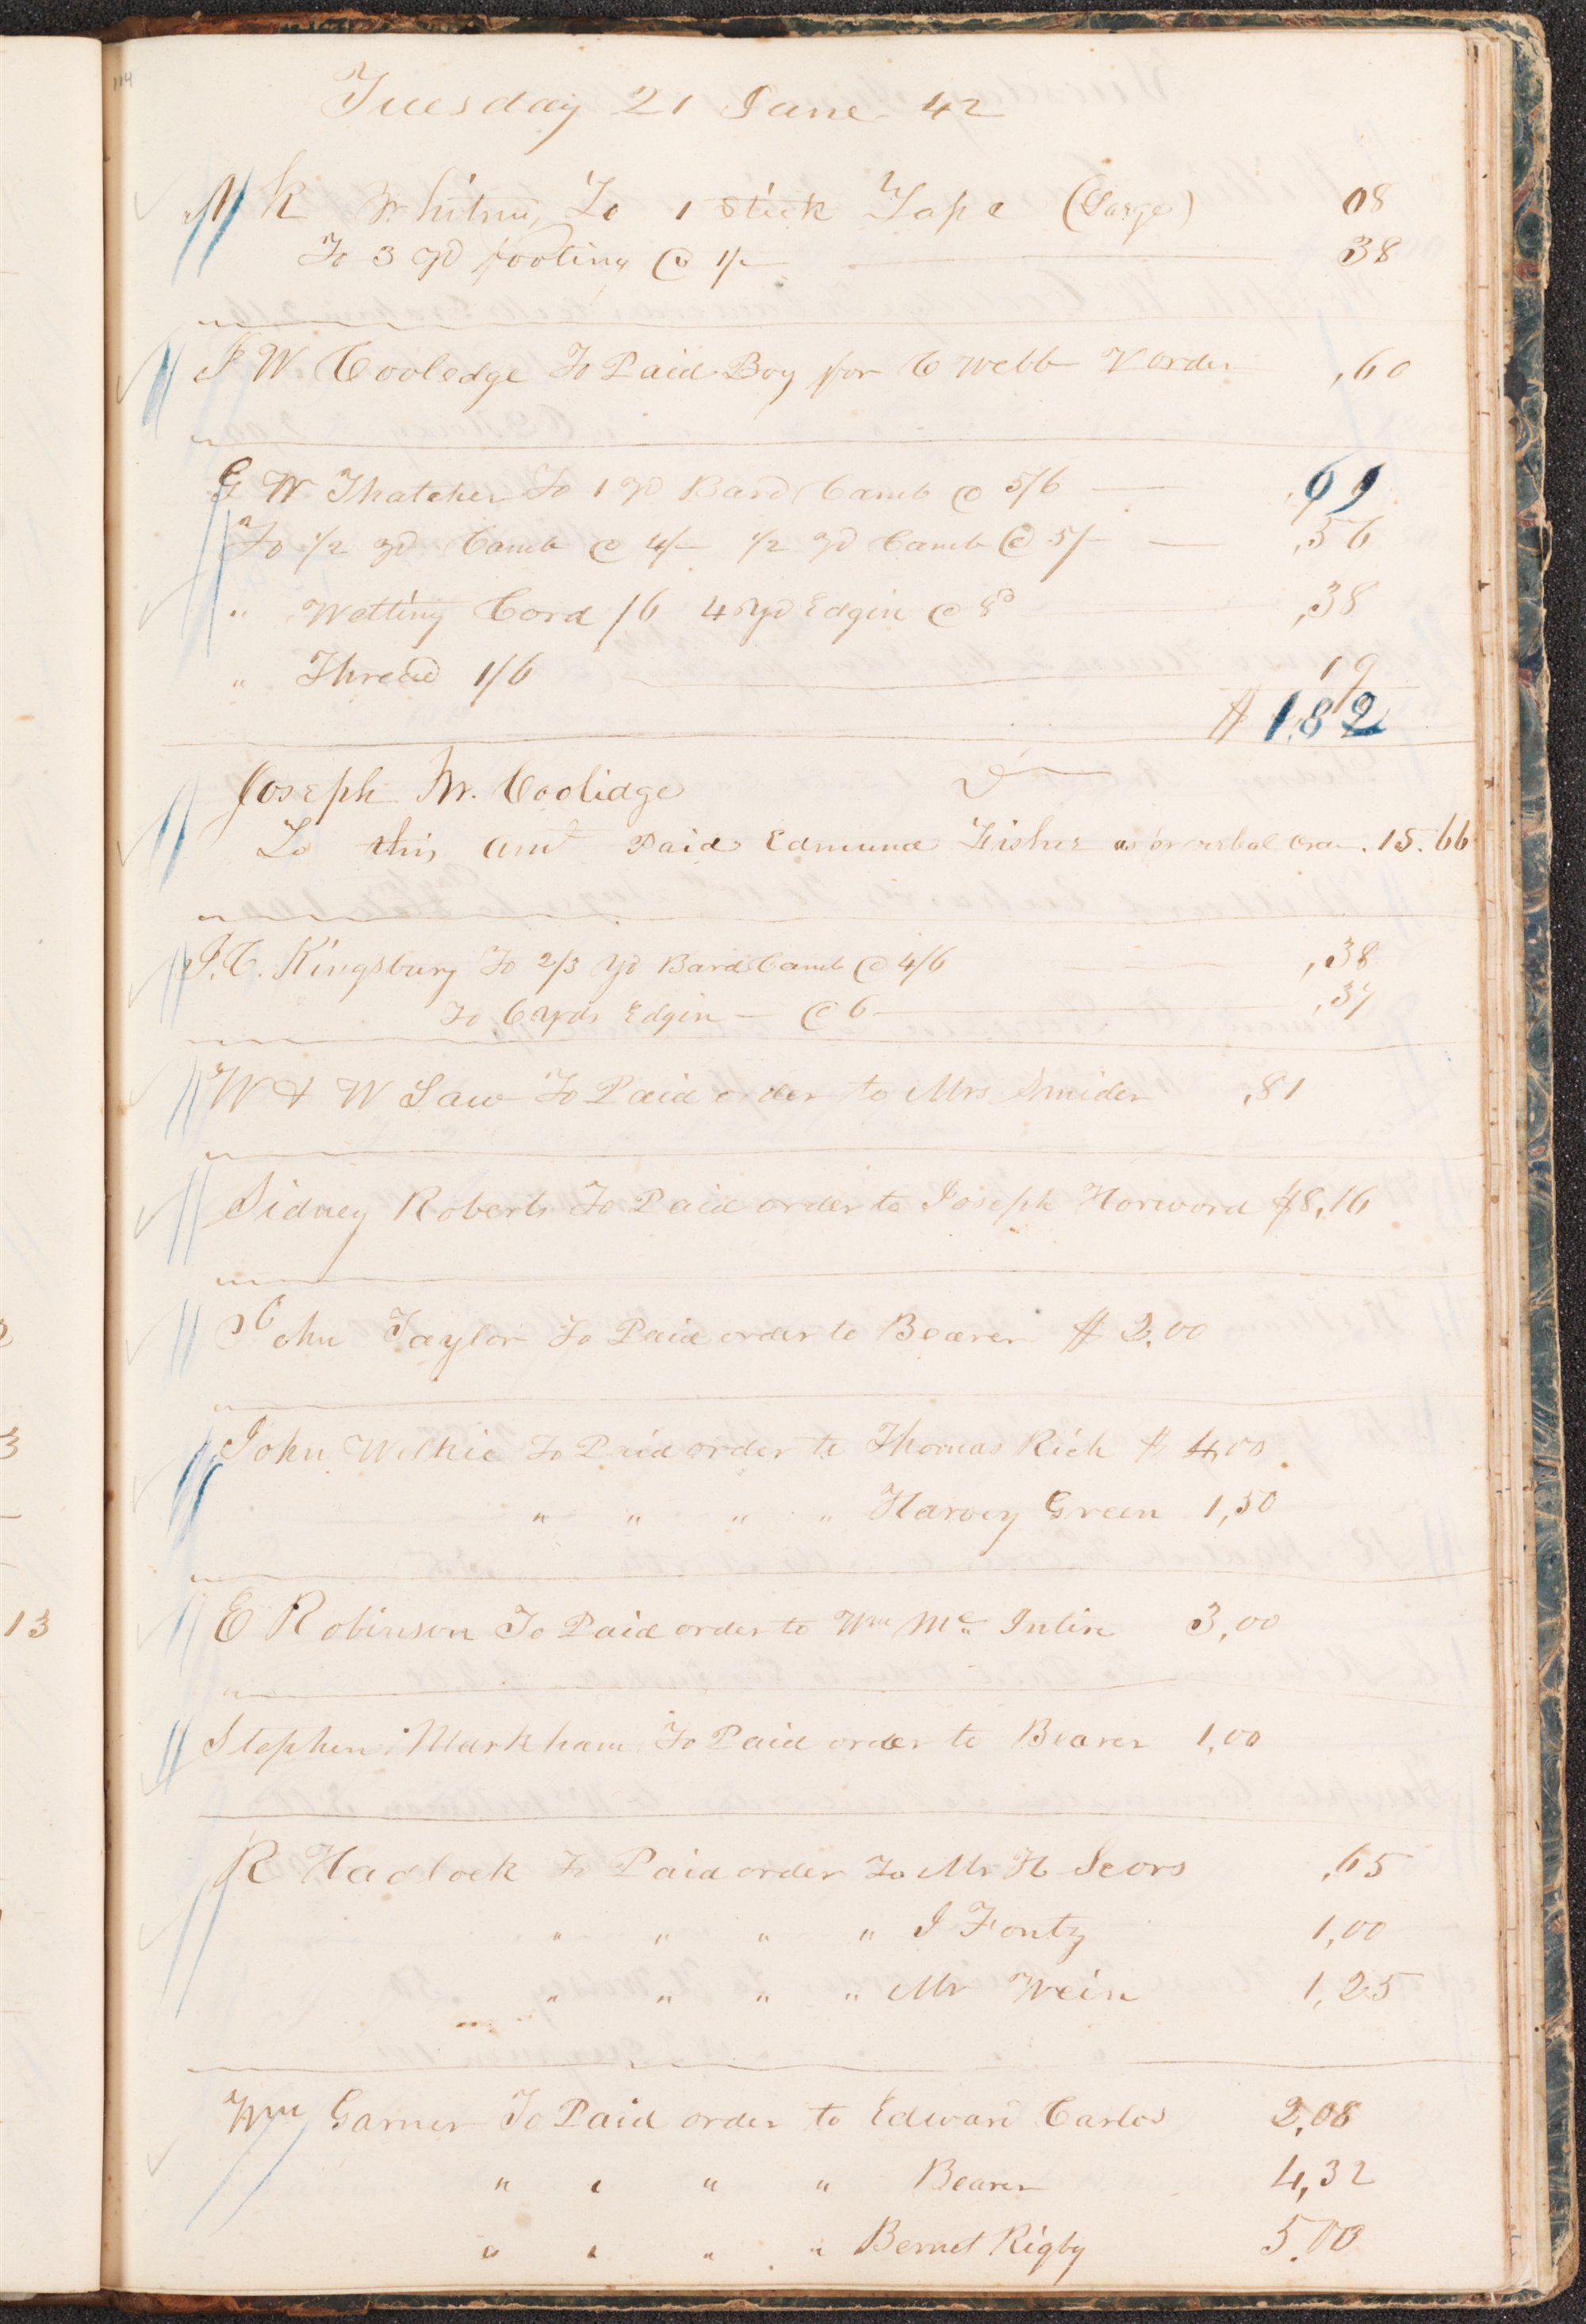 114
Tuesday 21 June 42
N K Whitney To 1 Stick Tape (Large) 08
To 3 yd footing @ 1/– 38
J W Cooledge To Paid Boy for C Webb V order ,60
G W Thatcher To 1 yd Bard Camb @ 5/6 — ,69
To 1/2 yd Camb @ 4/– 1/2 yd Camb @ 5/– — ,56
" Wetting Cord /6 4 yd Edgin @ 8d ,38
" Thread 1/6 19
$ 1.82
Joseph W. Coolidge Dr
To this amt Paid Edmund Fisher as pr verbal 15.66
J. C. Kingsbury To 2/3 yd Bard Camb @ 4/6 ,38
To 6 yds Edgin — @ 6 ,37
W & W Law To Paid order to Mrs Snider ,81
Sidney Roberts To Paid order to Joseph Horword $8,16
John Taylor To Paid order to Bearer $ 2.00
John Wilkie To Paid order to Thomas Rich $ 4,00
" " " " Harvey Green 1,50
E Robinson To Paid order to Wm Mc Intire 3,00
Stephen Markham To Paid order to Bearer 1,00
R Hadlock To Paid order To Mr H Scors ,65
" " " " J Fonty 1,00
" " " " Mr Wein 1,25
Wm Garner To Paid order to Edward Carlos 2,08
" " " " Bearer 4,32
" " " " Bernet Rigby 5.00
13